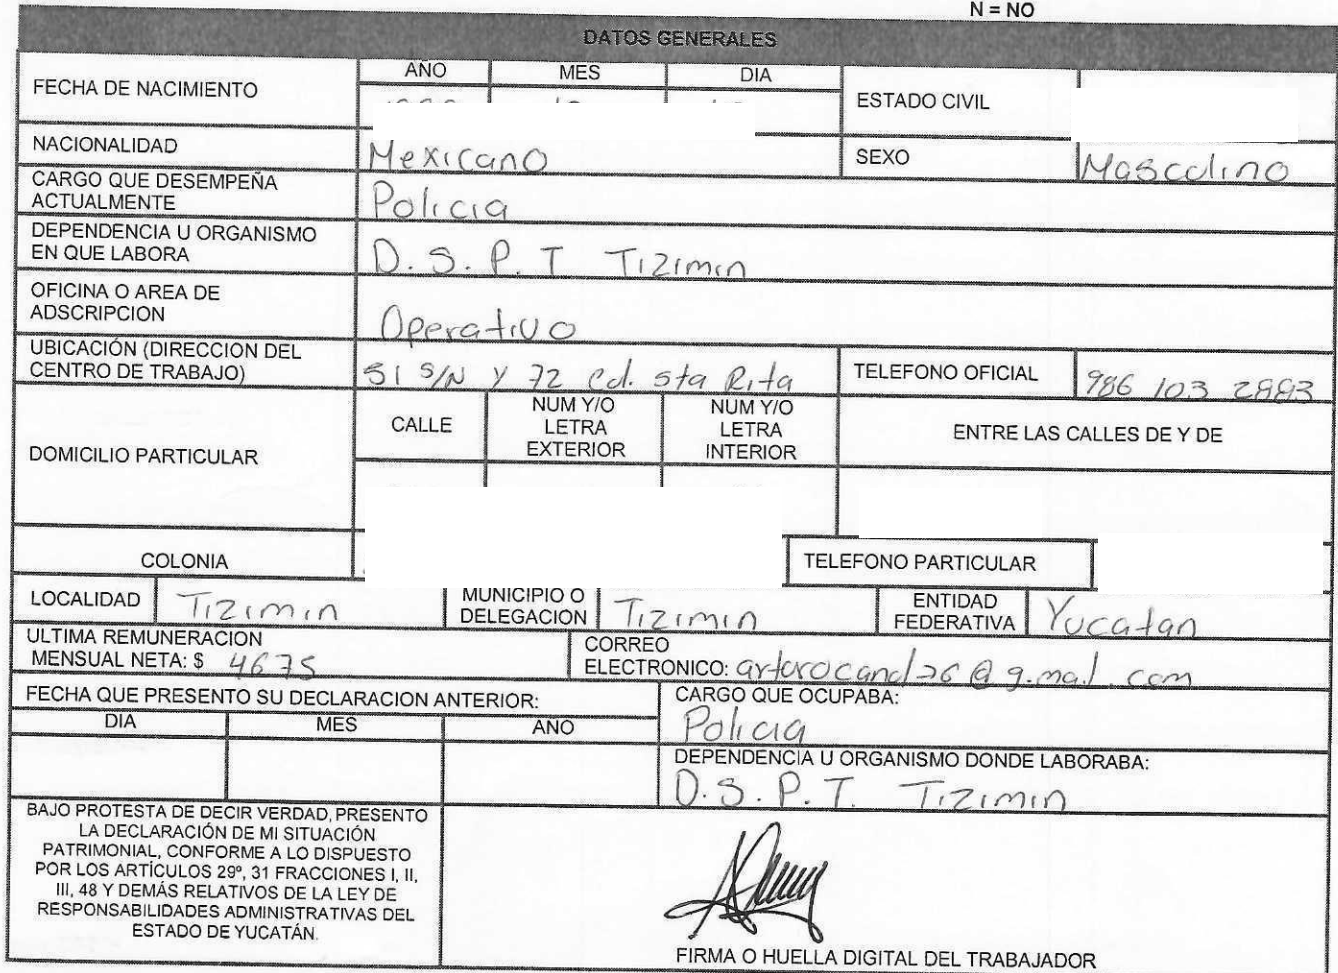 N = NO
DATOS GENERALES
FECHA DE NACIMIENTO
AÑO MES DIA
ESTADO CIVIL
NACIONALIDAD Mexicano SEXO Masculino
CARGO QUE DESEMPEÑA
ACTUALMENTE Policia
DEPENDENCIA U ORGANISMO
EN QUE LABORA D. S. P. T Tizimin
OFICINA O AREA DE
ADSCRIPCION Operativo
UBICACIÓN (DIRECCION DEL
CENTRO DE TRABAJO) 51 S/N y 72 Col. sta Rita TELEFONO OFICIAL 986 103 2883
DOMICILIO PARTICULAR
CALLE
NUM Y/O
LETRA
EXTERIOR
NUM Y/O
LETRA
INTERIOR
ENTRE LAS CALLES DE Y DE
COLONIA TELEFONO PARTICULAR
LOCALIDAD Tizimin
MUNICIPIO O
DELEGACION Tizimin
ENTIDAD
FEDERATIVA Yucatan
ULTIMA REMUNERACION
MENSUAL NETA: $ 4675
CORREO
ELECTRONICO: @ g.mail.com
FECHA QUE PRESENTO SU DECLARACION ANTERIOR:
DIA MES ANO
CARGO QUE OCUPABA:
Policia
DEPENDENCIA U ORGANISMO DONDE LABORABA:
D. S. P. T. Tizimin
BAJO PROTESTA DE DECIR VERDAD, PRESENTO
LA DECLARACIÓN DE MI SITUACIÓN
PATRIMONIAL, CONFORME A LO DISPUESTO
POR LOS ARTÍCULOS 29º, 31 FRACCIONES I, II,
III, 48 Y DEMÁS RELATIVOS DE LA LEY DE
RESPONSABILIDADES ADMINISTRATIVAS DEL
ESTADO DE YUCATÁN.
FIRMA O HUELLA DIGITAL DEL TRABAJADOR